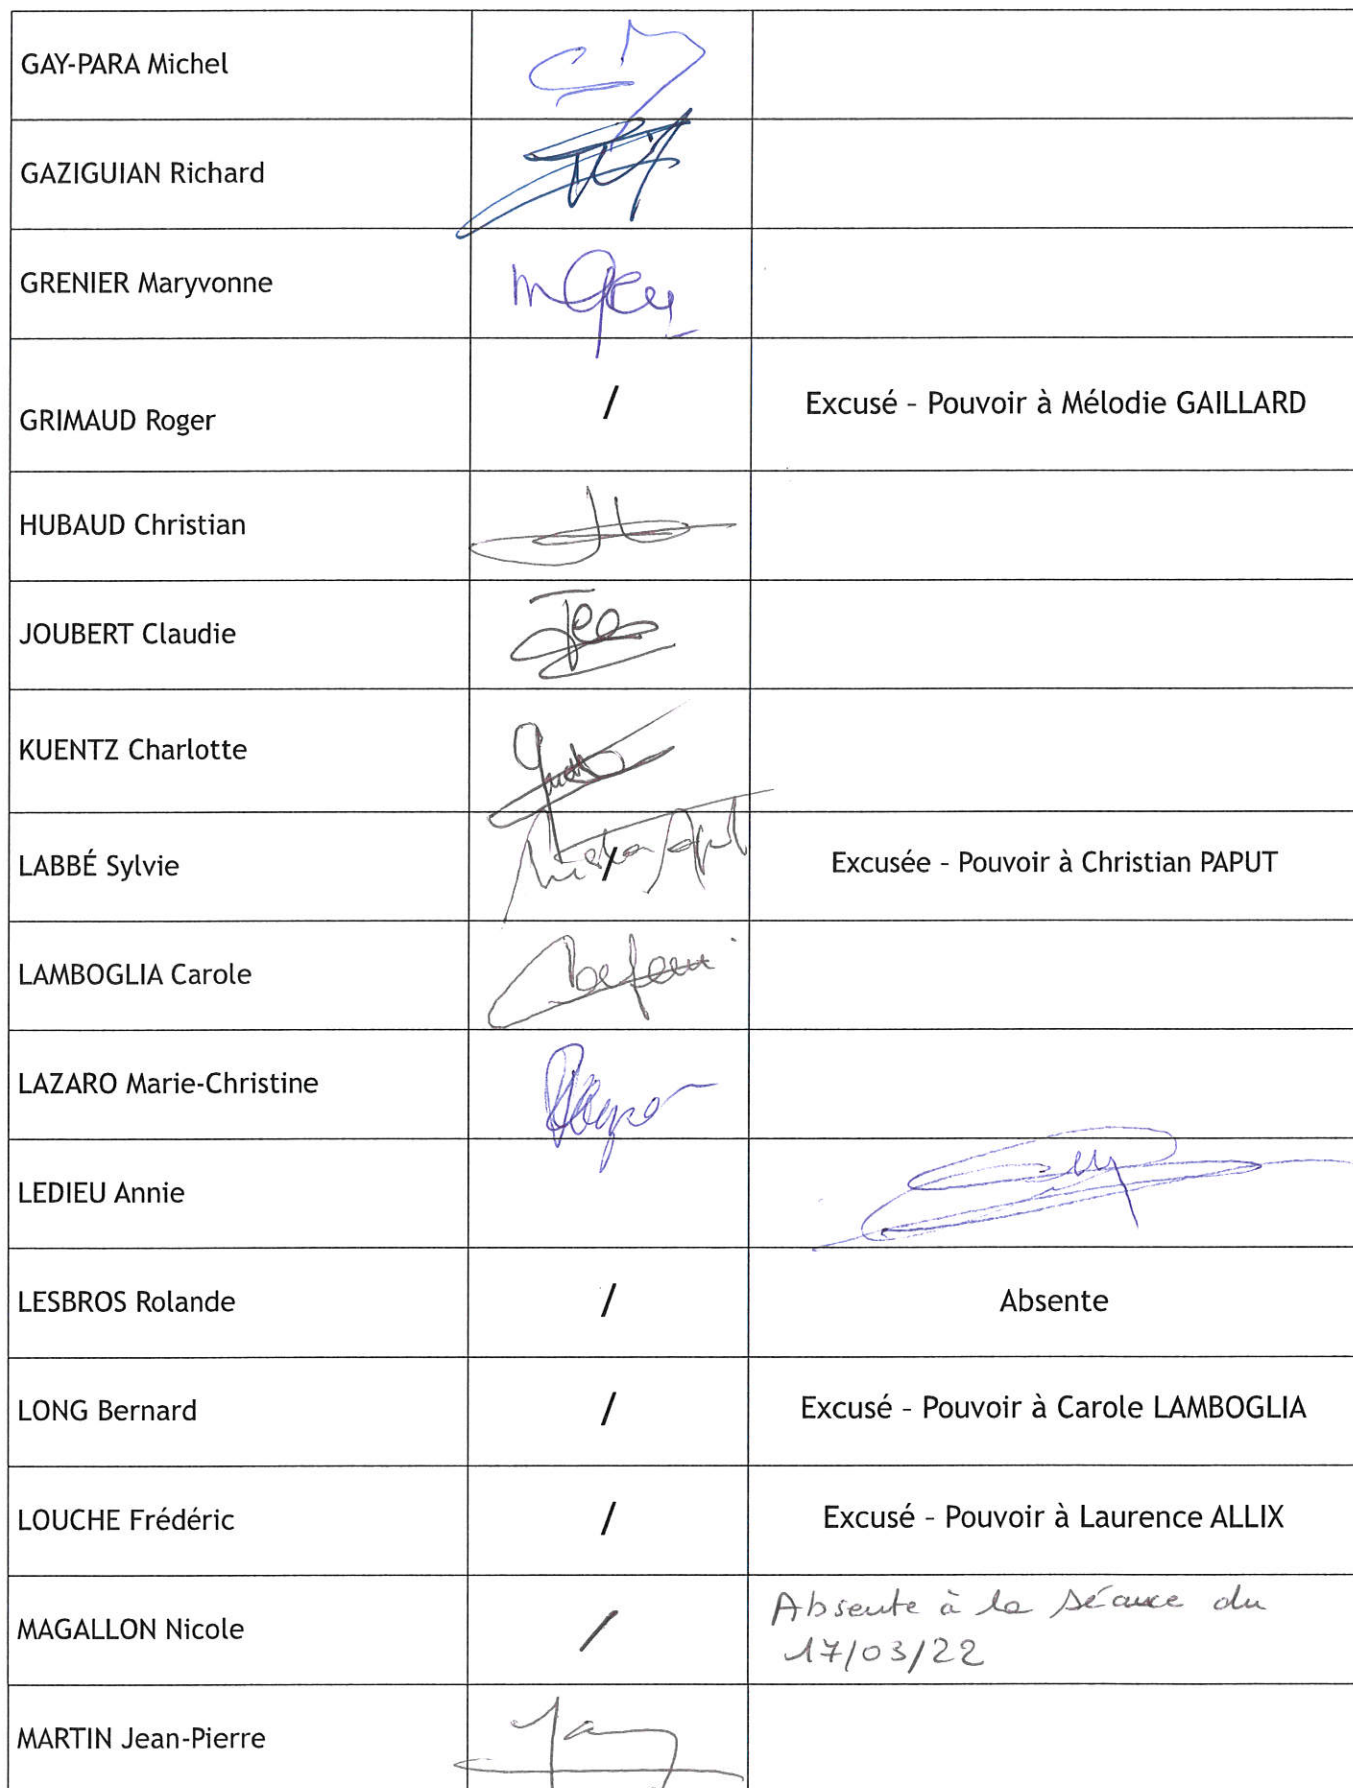 GAY-PARA Michel
GAZIGUIAN Richard
GRENIER Maryvonne
GRIMAUD Roger / Excusé – Pouvoir à Mélodie GAILLARD
HUBAUD Christian
JOUBERT Claudie
KUENTZ Charlotte
LABBÉ Sylvie / Excusée – Pouvoir à Christian PAPUT
LAMBOGLIA Carole
LAZARO Marie-Christine
LEDIEU Annie
LESBROS Rolande / Absente
LONG Bernard / Excusé – Pouvoir à Carole LAMBOGLIA
LOUCHE Frédéric / Excusé – Pouvoir à Laurence ALLIX
MAGALLON Nicole / Absente à la séance du
17/03/22
MARTIN Jean-Pierre